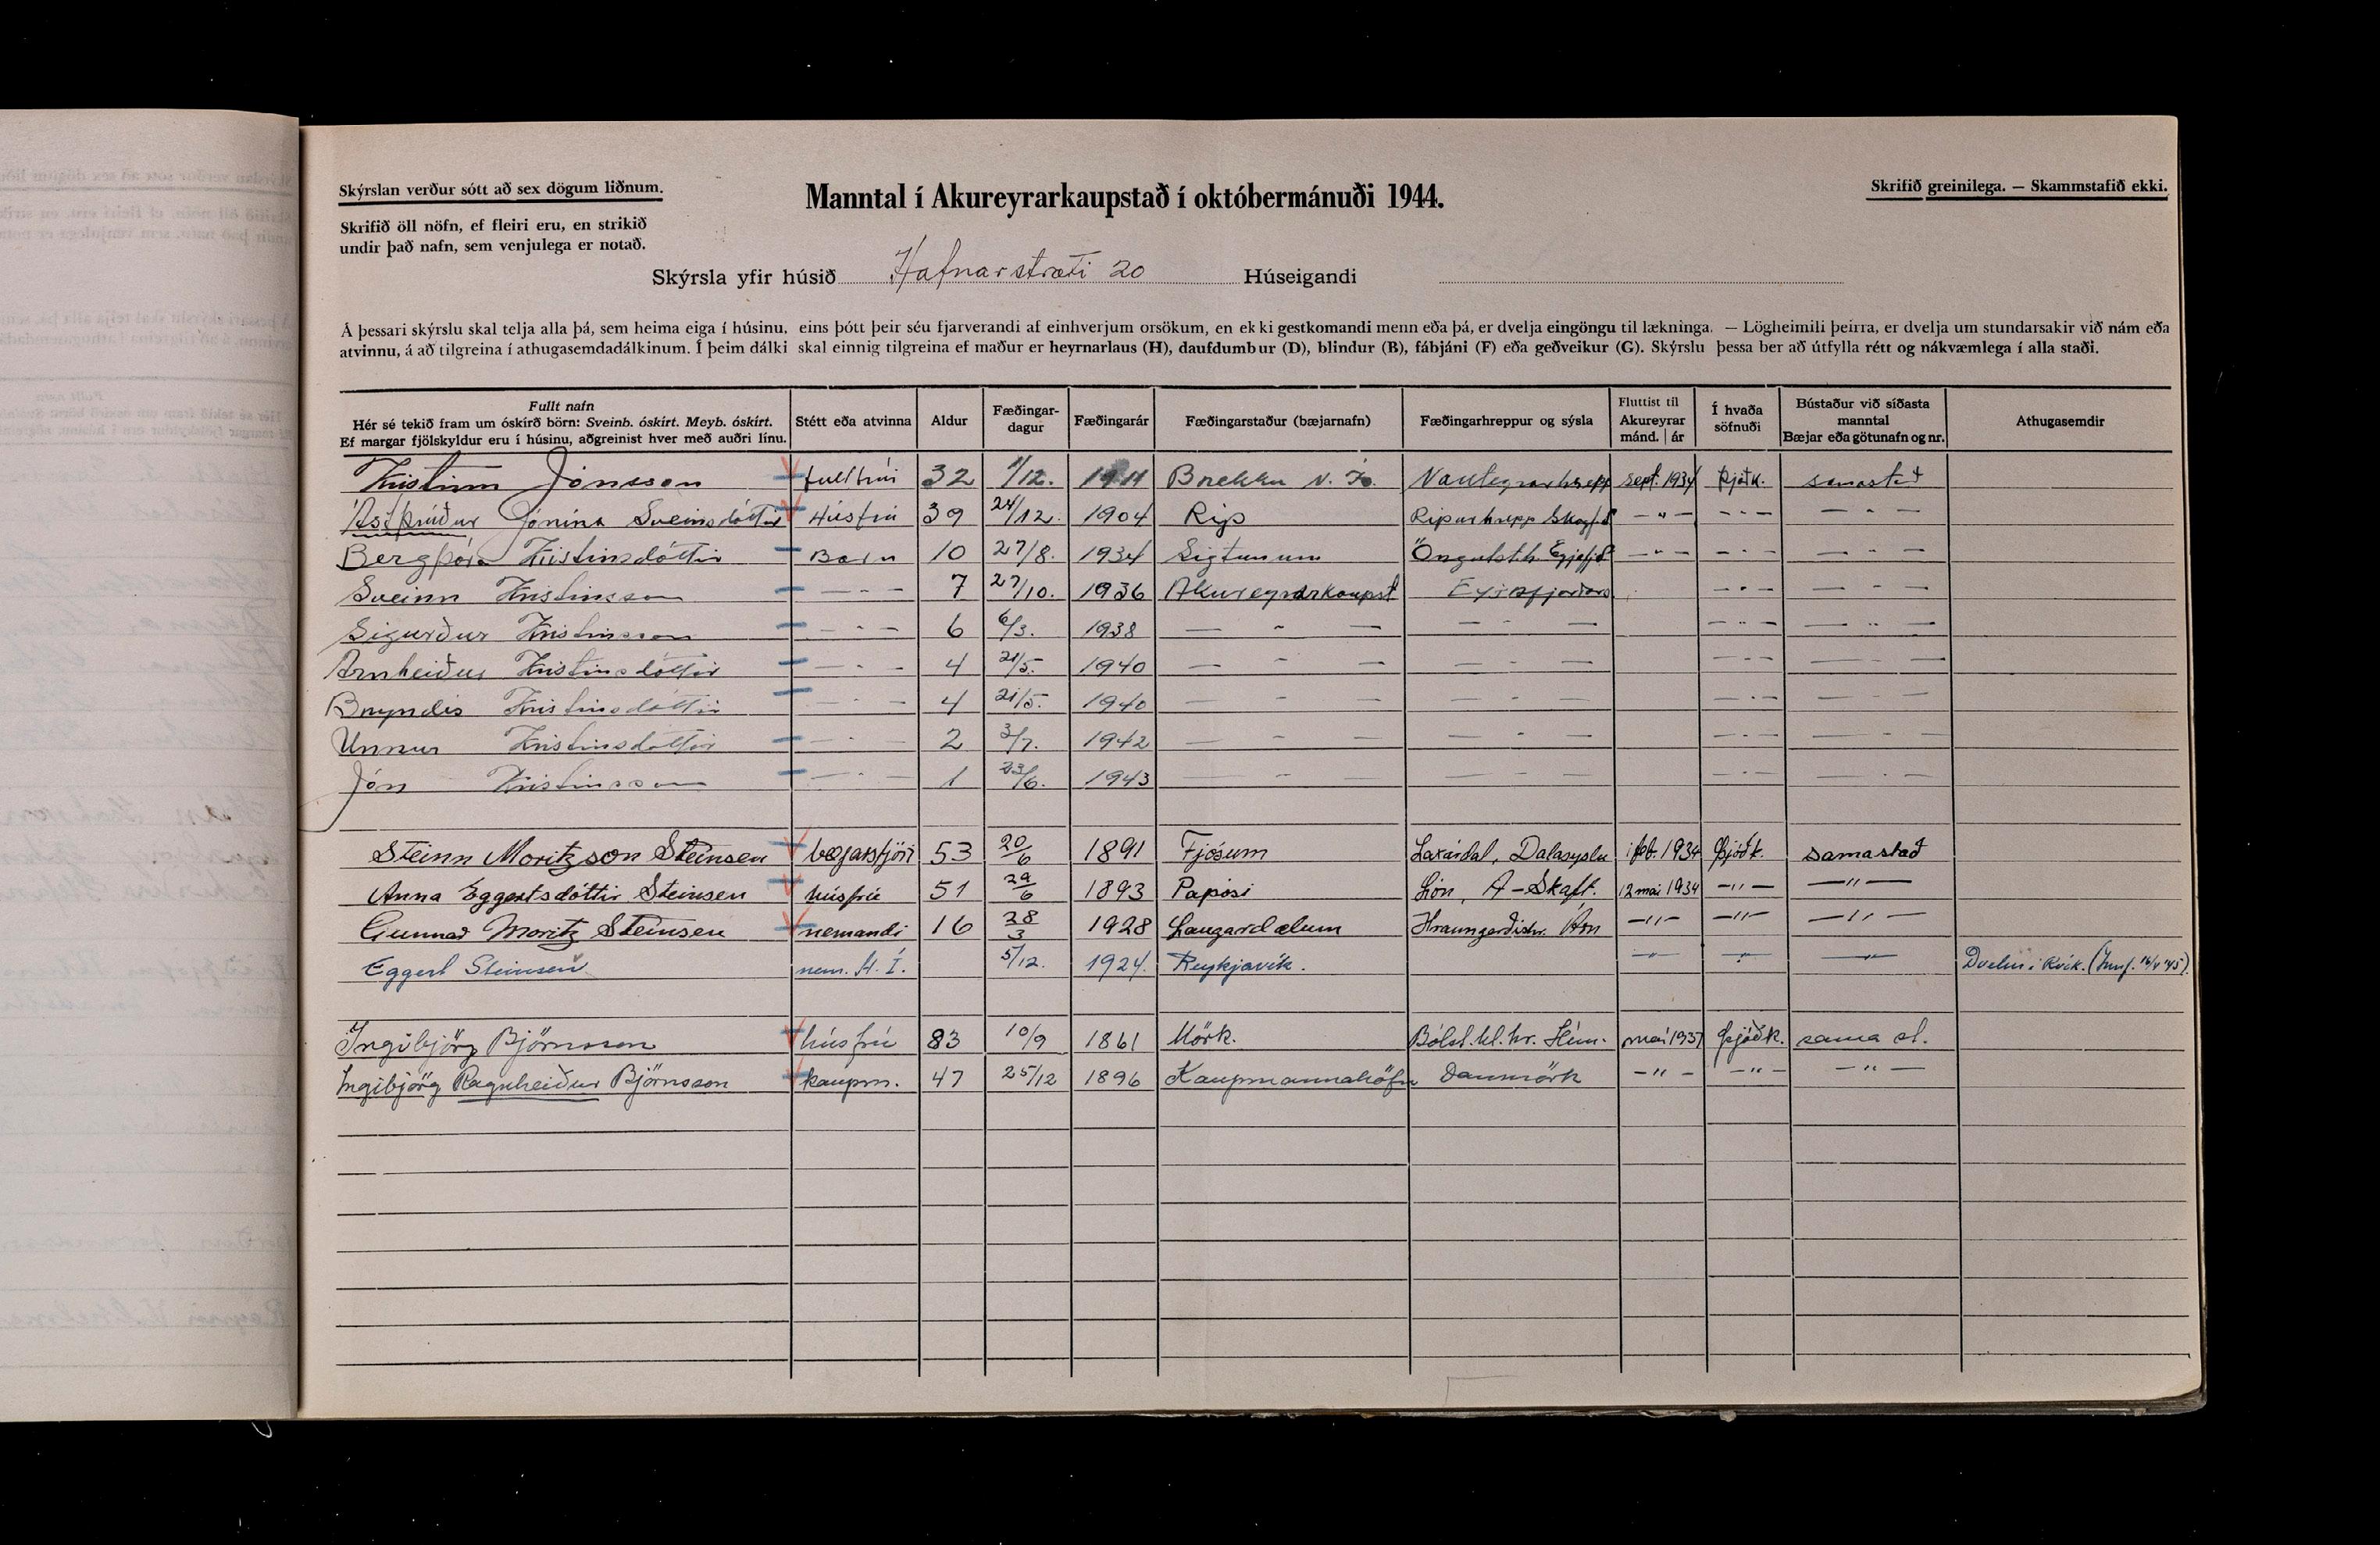 Skýrslan verður sótt að sex dögum liðnum.
Manntal í Akureyrarkaupstað í októbermánuði 1944.
Skrifið greinilega. — Skammstafið ekki.
Skrifið öll nöfn, ef fleiri eru, en strikið
undir það nafn, sem venjulega er notað.
Skýrsla yfir húsið Hafnarstræti 20 Húseigandi
Á þessari skýrslu skal telja alla þá, sem heima eiga í húsinu, eins þótt þeir séu fjarverandi af einhverjum orsökum, en ekki gestkomandi menn eða þá, er dvelja eingöngu til lækninga. — Lögheimili þeirra, er dvelja um stundarsakir við nám eða
atvinnu, á að tilgreina í athugasemdadálkinum. Í þeim dálki skal einnig tilgreina ef maður er heyrnarlaus (H), daufdumbur (D), blindur (B), fábjáni (F) eða geðveikur (G). Skýrslu þessa ber að útfylla rétt og nákvæmlega í alla staði.
Fullt nafn
Hér sé tekið fram um óskírð börn: Sveinb. óskírt. Meyb. óskírt.
Ef margar fjölskyldur eru í húsinu, aðgreinist hver með auðri línu.
Stétt eða atvinna
Aldur
Fæðingar-
dagur
Fæðingarár
Fæðingarstaður (bæjarnafn)
Fæðingarhreppur og sýsla
Fluttist til
Akureyrar
mánd. | ár
Í hvaða
söfnuði
Bústaður við síðasta
manntal
Bæjar eða götunafn og nr.
Athugasemdir
Kristinn Jónsson fulltrúi 32 1/12. 1911 Brekku N. Þ. sept. 1934 þjóðk. samastað
Ástþrúður Jónína Sveinsdóttir Húsfrú 39 24/12. 1904 Ríp Ripurhrepp Skagf. — " — — " — — " —
Bergþóra Kristinsdóttir Barn 10 27/8. 1934 Sigtunum Öngulsth. Eyjafj. — " — — " — — " —
Sveinn Kristinsson — " — 7 27/10. 1936 Akureyrarkaupst — " — — " —
Sigurður Kristinsson — " — 6 6/3. 1938 — " — — " — — " — — " —
Arnheiður Kristinsdóttir — " — 4 21/5. 1940 — " — — " — — " — — " —
Bryndís Kristinsdóttir — " — 4 21/5. 1940 — " — — " — — " — — " —
Unnur Kristinsdóttir — " — 2 3/7. 1942 — " — — " — — " — — " —
Jón Kristinsson — " — 1 23/6. 1943 — " — — " — — " — — " —
Steinn Moritzson Steinsen bæjarstjóri 53 20/6 1891 Fjósum Laxárdal, Dalasyslu feb. 1934 þjóðk. samastað
Anna Eggertsdóttir Steinsen húsfrú 51 29/6 1893 Papósi Lón, A-Skaft. 12 mai 1934 — " — — " —
Gunnar Moritz Steinsen nemandi 16 28/3 1928 Laugardælum Hraungerðishr. Árn — " — — " — — " —
Eggert Steinsen nem. H. Í. 5/12. 1924. Reykjavík. — " — — " — — " — Dvelur í Rvík.
Ingibjörg Björnsson húsfrú 83 10/9 1861 Mörk. Bólst.hl.hr. Hún. maí 1937 þjóðk. sama st.
Ingibjörg Ragnheiður Björnsson kaupm. 47 25/12 1896 Kaupmannahöfn Danmörk — " — — " — — " —